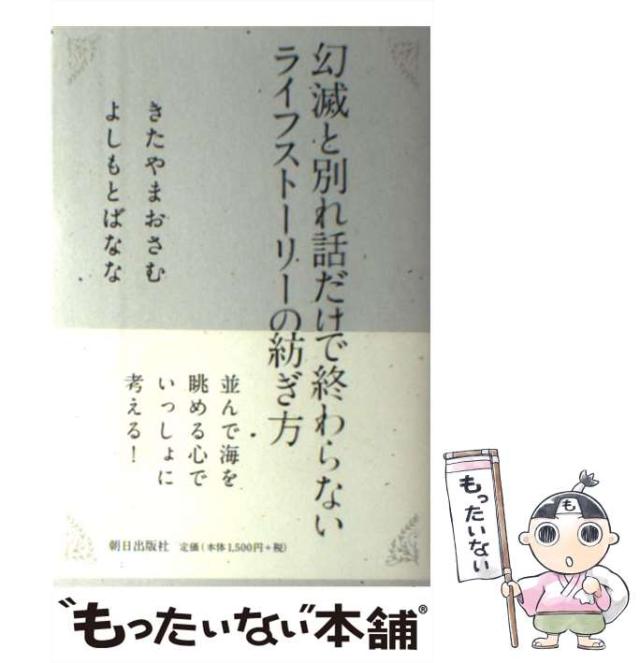 幻滅と別れ話だけで終わらない
ライフストーリーの紡ぎ方
きたやまおさむ
よしもとばなな
並んで海を
眺める心で
いっしょに
考える!
朝日出版社 定価(本体1,500円+税)
"もったいない"本舗®
もったいない
も